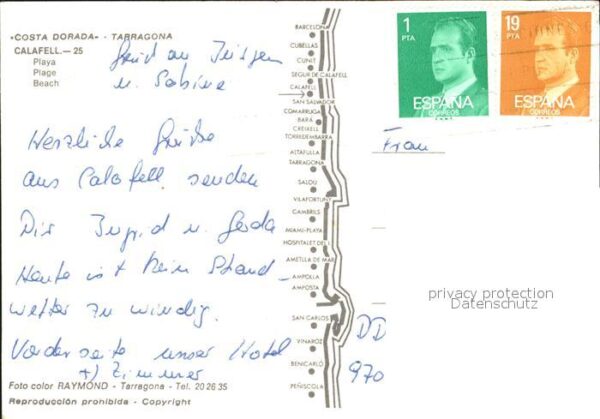 «COSTA DORADA» - TARRAGONA
CALAFELL.— 25
Playa
Plage
Beach
Gruß an Jürgen
u. Sabine
Herzliche Grüße
aus Calafell senden
Dir Ingrid u. Gerda
Heute ist kein Strand-
wetter zu windig.
Vorderseite unser Hotel
+) Zimmer
Foto color RAYMOND - Tarragona - Tel. 20 26 35
Reproducción prohibida - Copyright
BARCELONA
CUBELLAS
CUNIT
SEGUR DE CALAFELL
CALAFELL
SAN SALVADOR
COMARRUGA
BARÁ
CREIXELL
TORREDEMBARRA
ALTAFULLA
TARRAGONA
SALOU
VILAFORTUNY
CAMBRILS
MIAMI-PLAYA
HOSPITALET DEL I.
AMETLLA DE MAR
AMPOLLA
AMPOSTA
SAN CARLOS
VINAROZ
BENICARLÓ
PEÑISCOLA
1
PTA
ESPAÑA
CORREOS
19
PTA
ESPAÑA
CORREOS
Frau
privacy protection
Datenschutz
DD
970